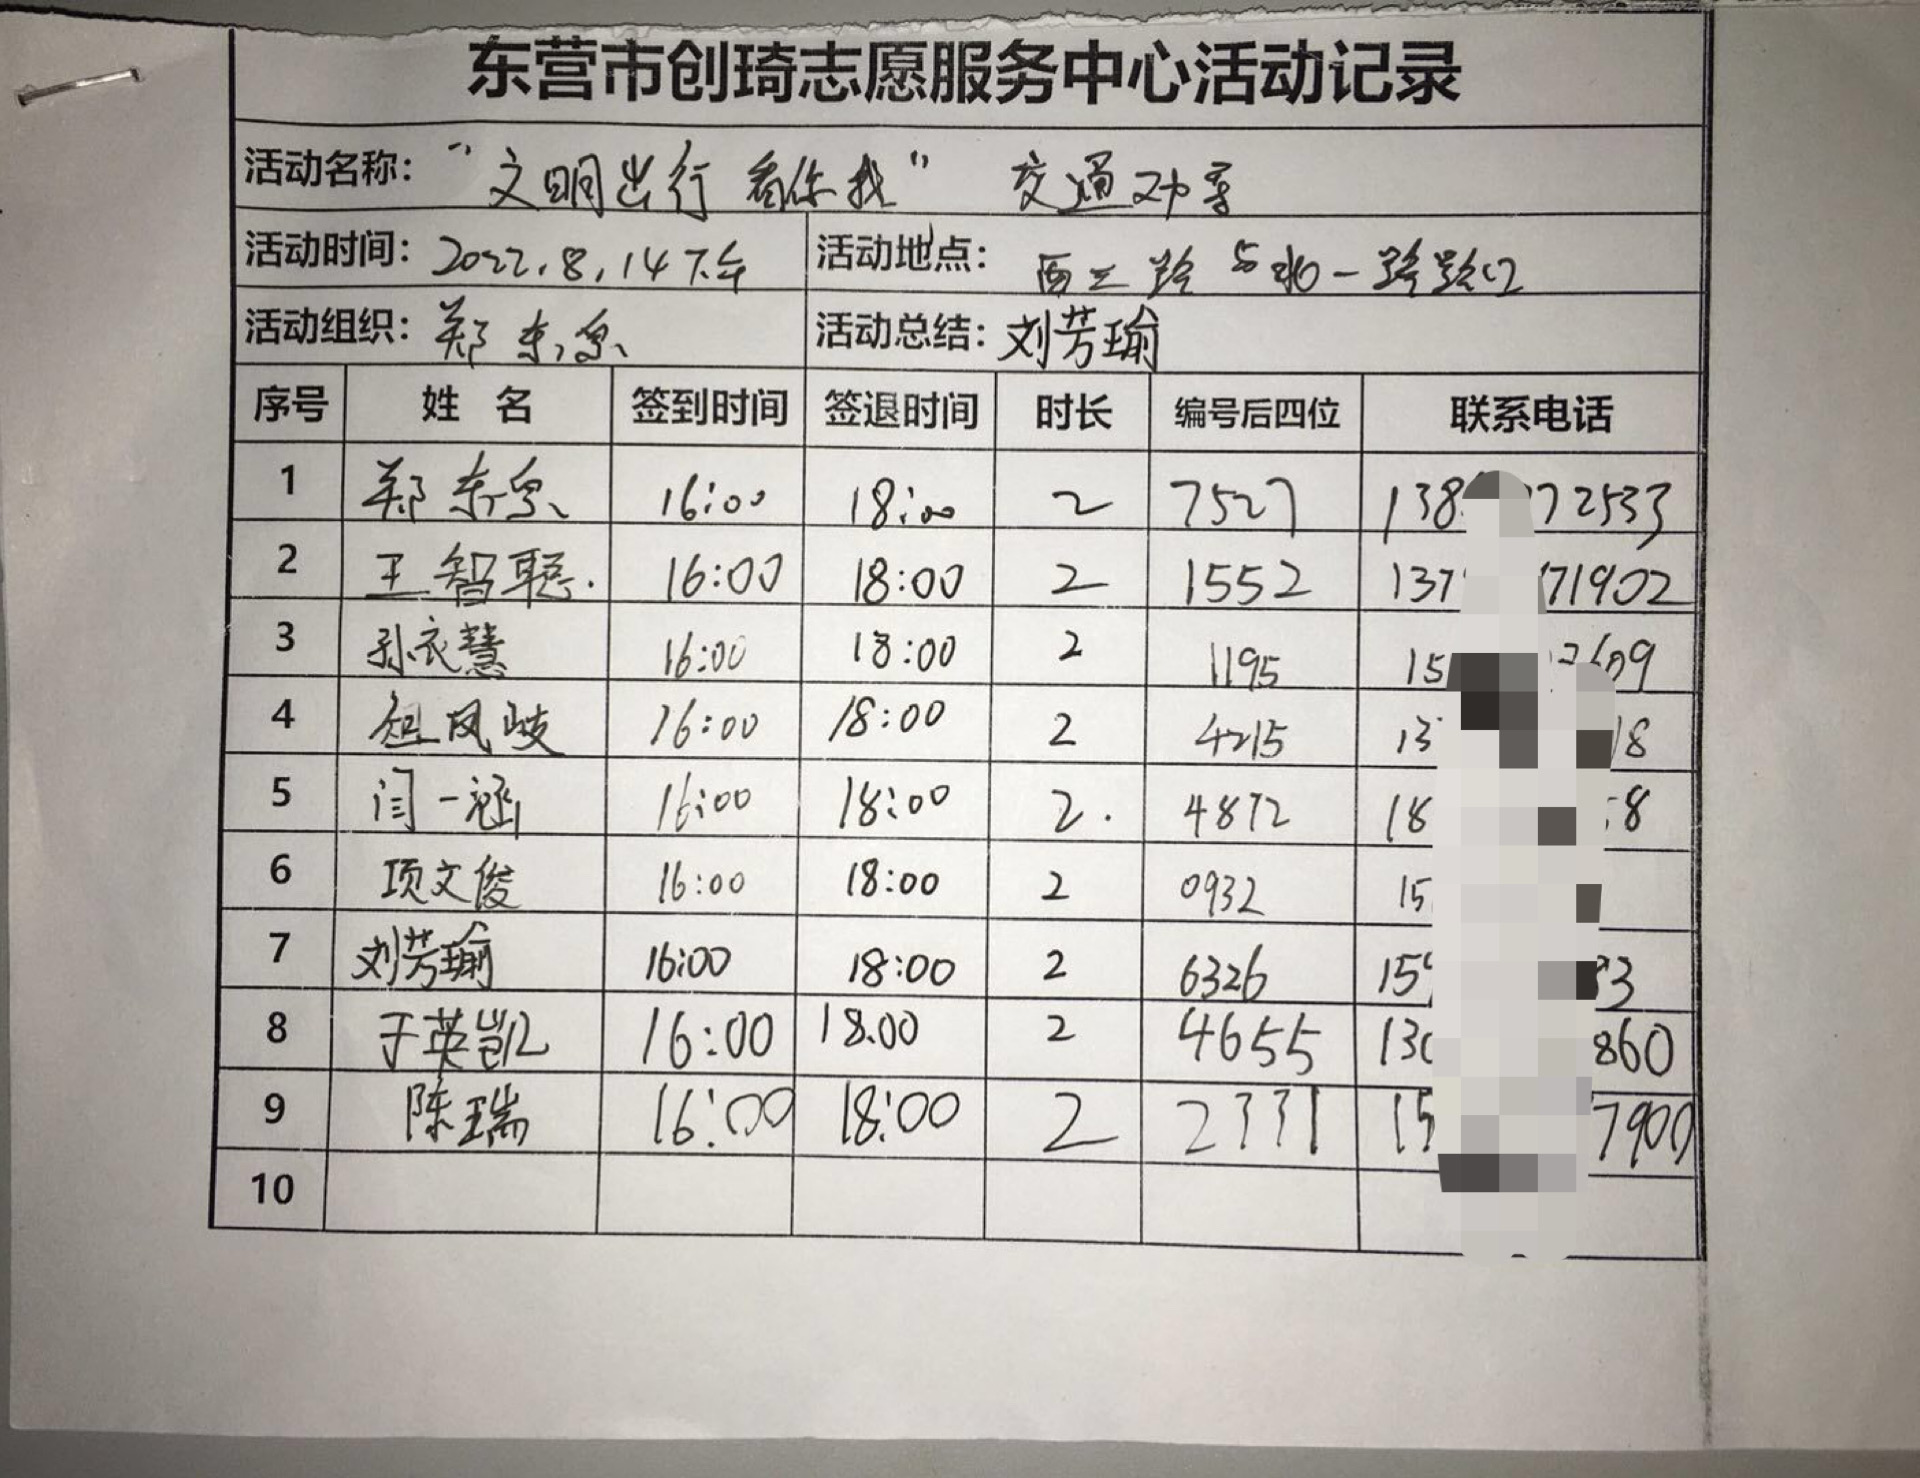 东营市创琦志愿服务中心活动记录
活动名称： “文明出行 看你我” 交通劝导
活动时间： 2022.8.14下午 活动地点： 西三路与北一路路口
活动组织： 郑东泉 活动总结： 刘芳瑜
序号 姓 名 签到时间 签退时间 时长 编号后四位 联系电话
1 郑东泉 16:00 18:00 2 7527 138 72533
2 王智聪. 16:00 18:00 2 1552 137 71902
3 孙衣慧 16:00 18:00 2 1195 15 609
4 凤岐 16:00 18:00 2 4215 13 18
5 闫一涵 16:00 18:00 2. 4872 18 8
6 项文俊 16:00 18:00 2 0932 15
7 刘芳瑜 16:00 18:00 2 6326 15 3
8 于英凯 16:00 18.00 2 4655 130 860
9 陈瑞 16:00 18:00 2 2331 15 7900
10